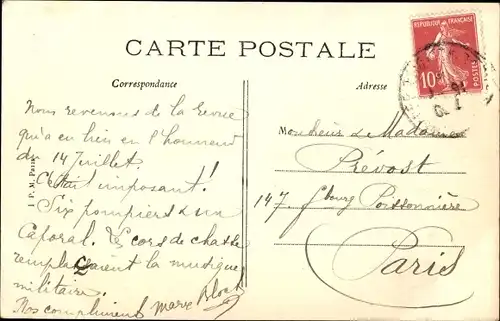 CARTE POSTALE
Correspondance
Adresse
REPUBLIQUE FRANÇAISE
10
POSTES
J P. M. Paris
Nous revenons de la revue
qui a eu lieu en l'honneur
du 14 Juillet.
C'était imposant!
Six pompiers & un
Caporal. Les cors de chasse
remplaçaient la musique
militaire.
Nos compliments Marx Bloch
Monsieur & Madame
Prévost
147, fbourg Poissonnière
Paris